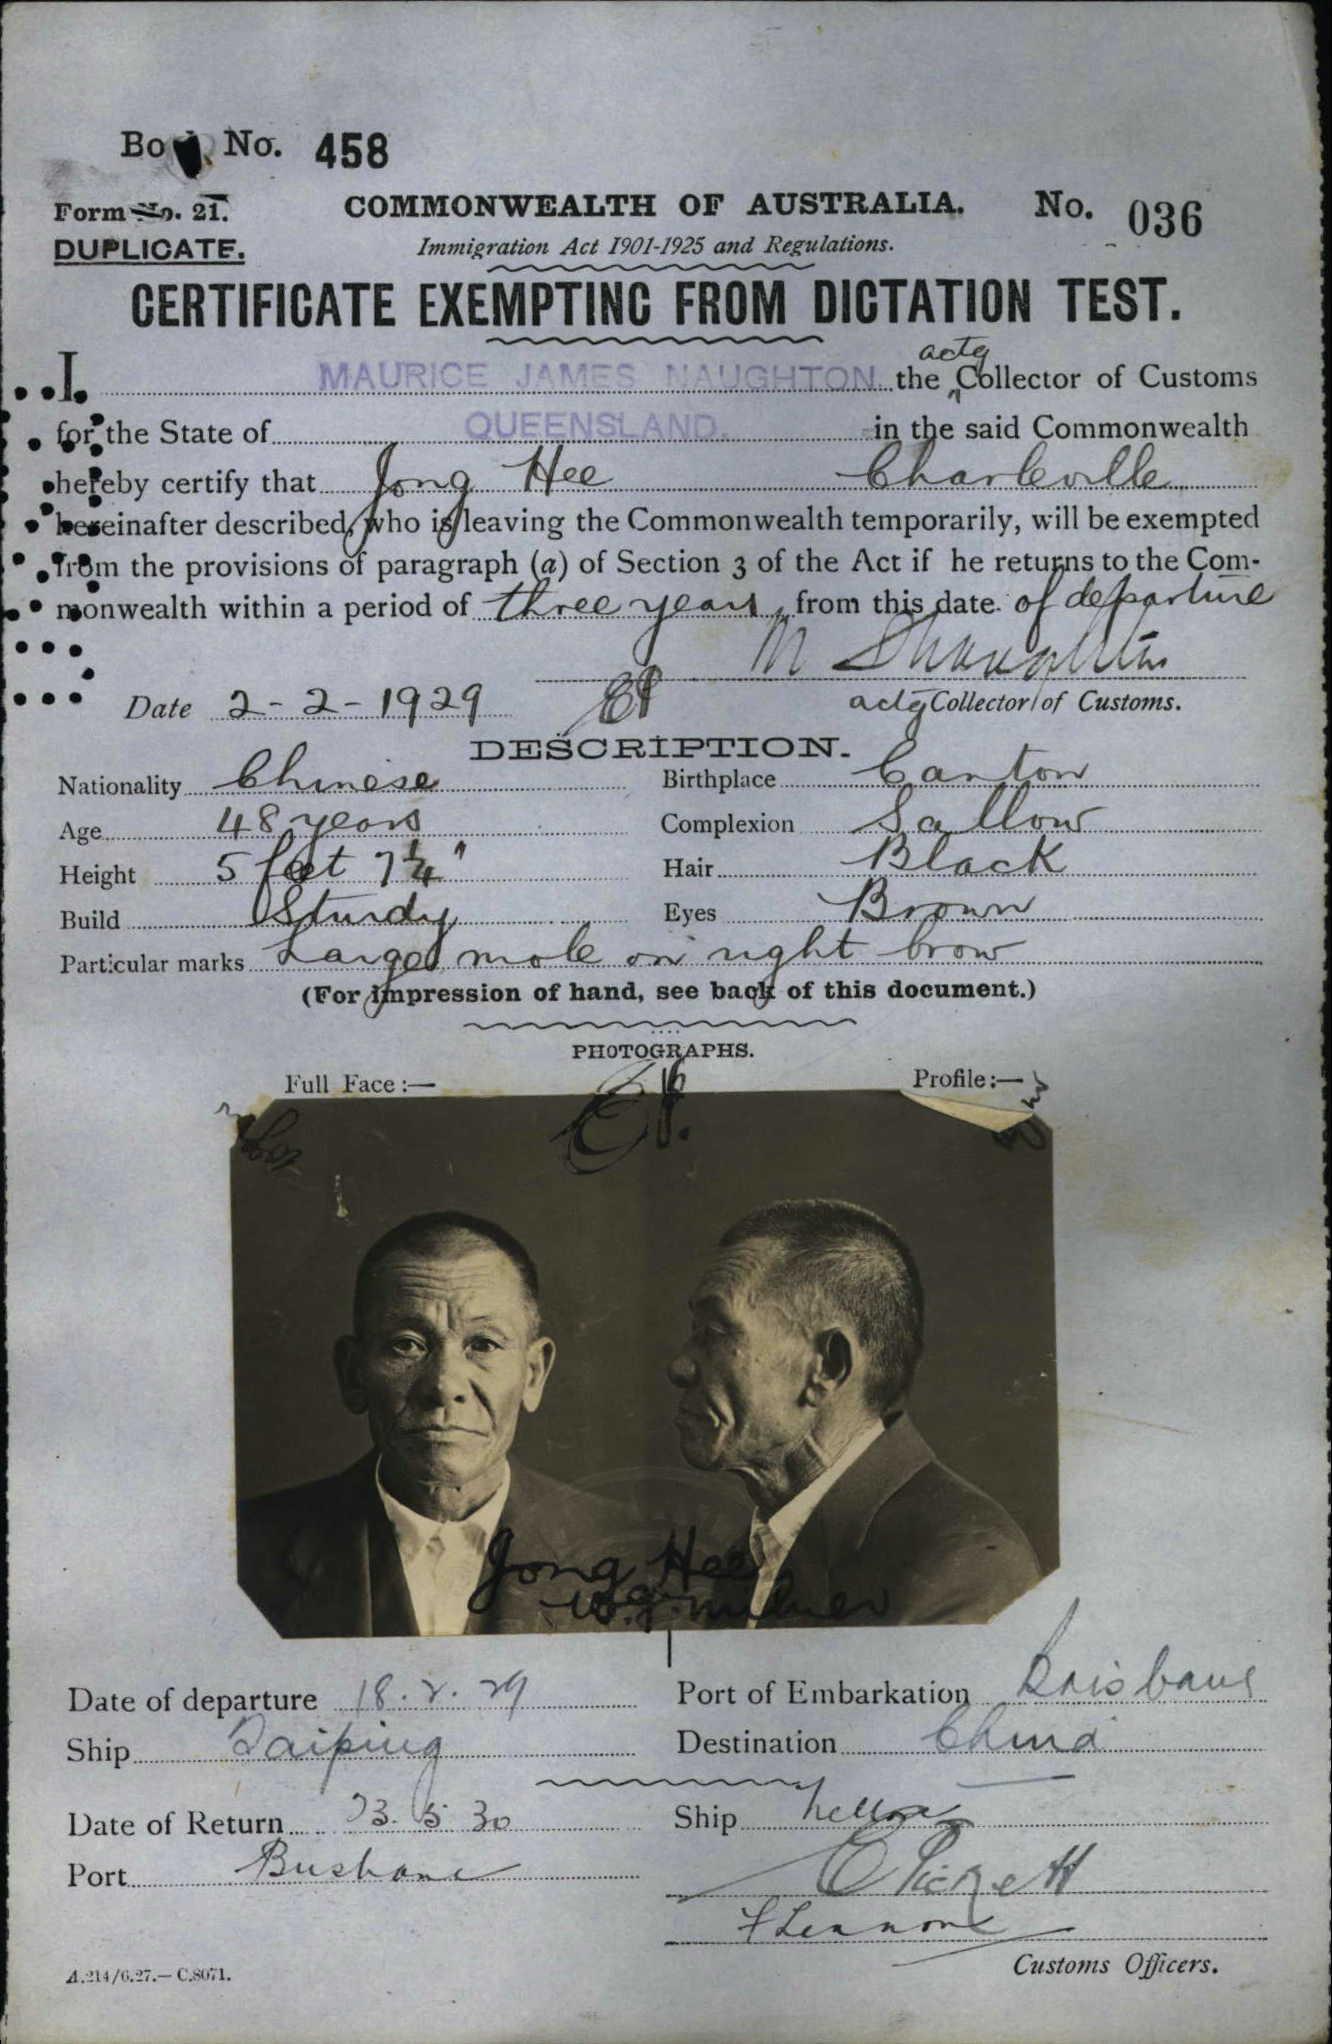 Book No. 458
Form No. 21. COMMONWEALTH OF AUSTRALIA. No. 036
DUPLICATE. Immigration Act 1901-1925 and Regulations.
CERTIFICATE EXEMPTING FROM DICTATION TEST.
I, MAURICE JAMES NAUGHTON the actg Collector of Customs
for the State of QUEENSLAND. in the said Commonwealth
hereby certify that Jong Hee Charleville
hereinafter described, who is leaving the Commonwealth temporarily, will be exempted
from the provisions of paragraph (a) of Section 3 of the Act if he returns to the Com-
monwealth within a period of three years, from this date of departure
Date 2-2-1929 actg Collector of Customs.
DESCRIPTION.
Nationality Chinese Birthplace Canton
Age 48 years Complexion Sallow
Height 5 feet 7 1/4" Hair Black
Build Sturdy Eyes Brown
Particular marks Large mole on right brow
(For impression of hand, see back of this document.)
PHOTOGRAPHS.
Full Face:— Profile:—
Jong Hee
Date of departure 18.2.29 Port of Embarkation Brisbane
Ship Taiping Destination China
Date of Return 23.5.30 Ship Nellore
Port Brisbane
C Pickett
F Lennon
Customs Officers.
A.214/6.27.—C.8071.